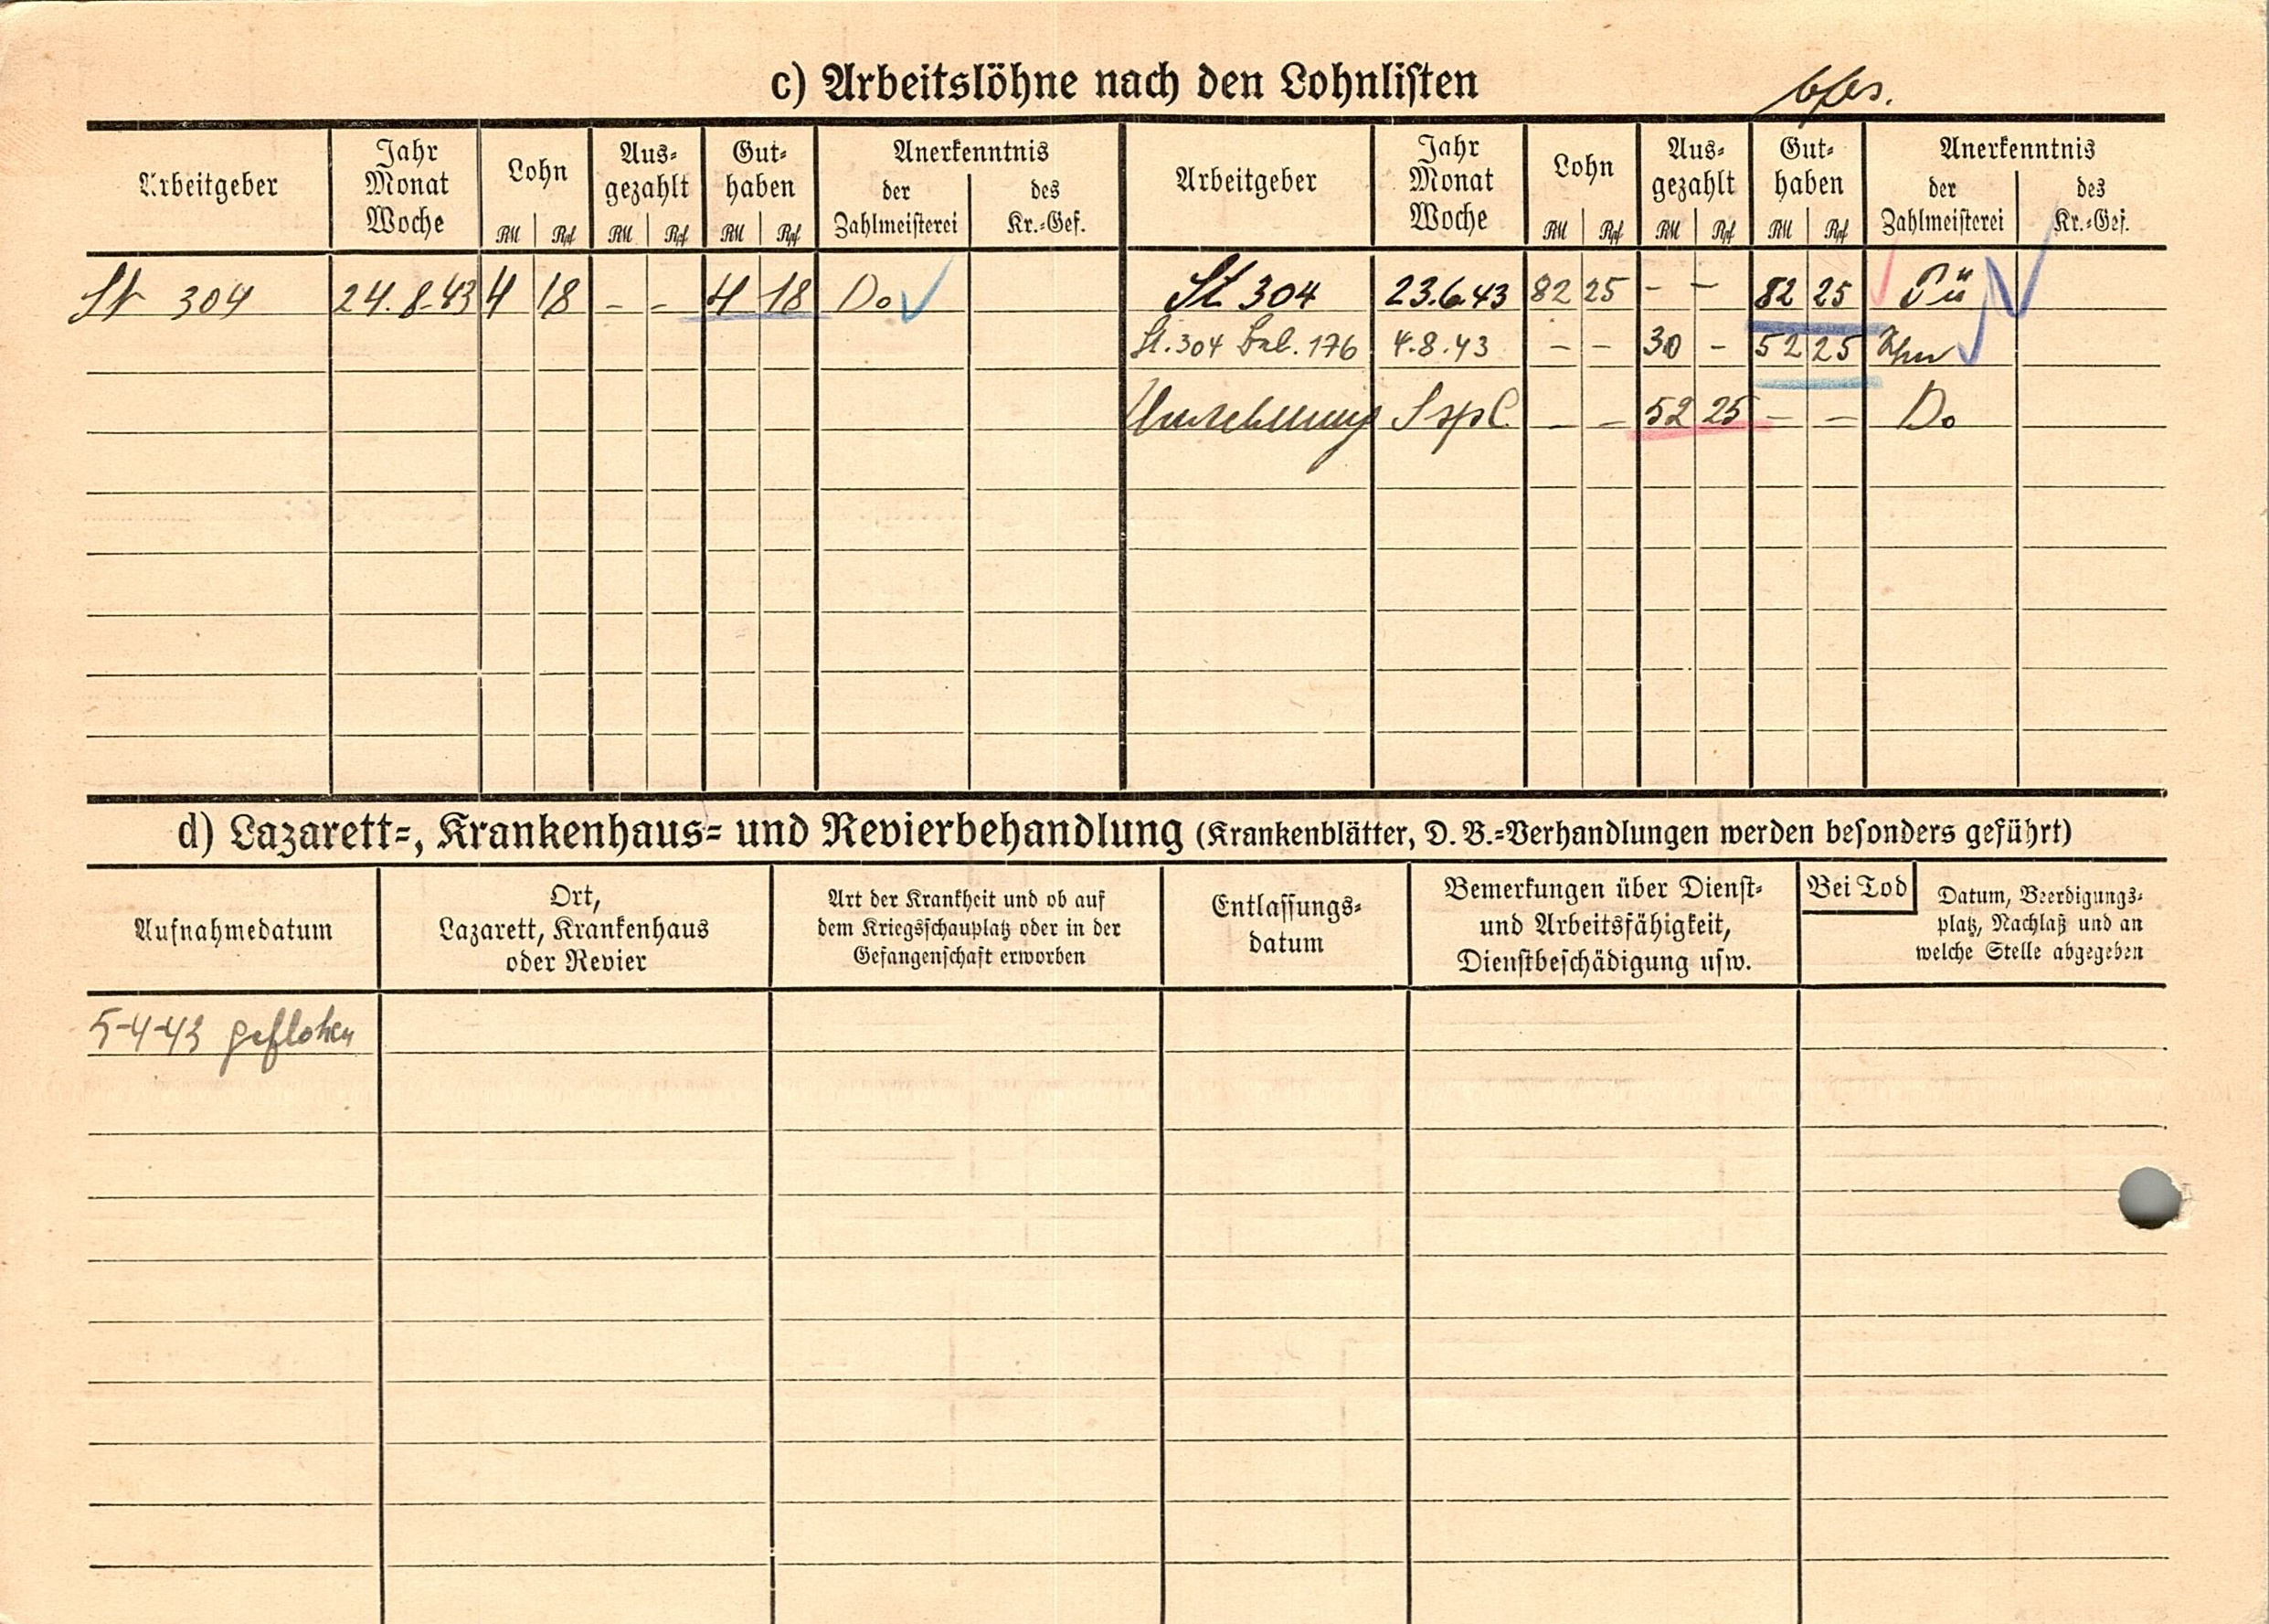 c) Arbeitslöhne nach den Lohnlisten
Arbeitgeber
Jahr
Monat
Woche
Lohn
RM Rpf
Aus-
gezahlt
RM Rpf
Gut-
haben
RM Rpf
Anerkenntnis
der
Zahlmeisterei
des
Kr.-Gef.
Arbeitgeber
Jahr
Monat
Woche
Lohn
RM Rpf
Aus-
gezahlt
RM Rpf
Gut-
haben
RM Rpf
Anerkenntnis
der
Zahlmeisterei
des
Kr.-Gef.
St 304 24.8.43 4 18 - - 4 18 Do
St 304 23.6.43 82 25 - - 82 25 Pü
St. 304 176 4.8.43 - - 30 - 52 25
- - 52 25 - - Do
d) Lazarett-, Krankenhaus- und Revierbehandlung (Krankenblätter, D. B.-Verhandlungen werden besonders geführt)
Aufnahmedatum
Ort,
Lazarett, Krankenhaus
oder Revier
Art der Krankheit und ob auf
dem Kriegsschauplatz oder in der
Gefangenschaft erworben
Entlassungs-
datum
Bemerkungen über Dienst-
und Arbeitsfähigkeit,
Dienstbeschädigung usw.
Bei Tod
Datum, Beerdigungs-
platz, Nachlaß und an
welche Stelle abgegeben
5-4-43 geflohen